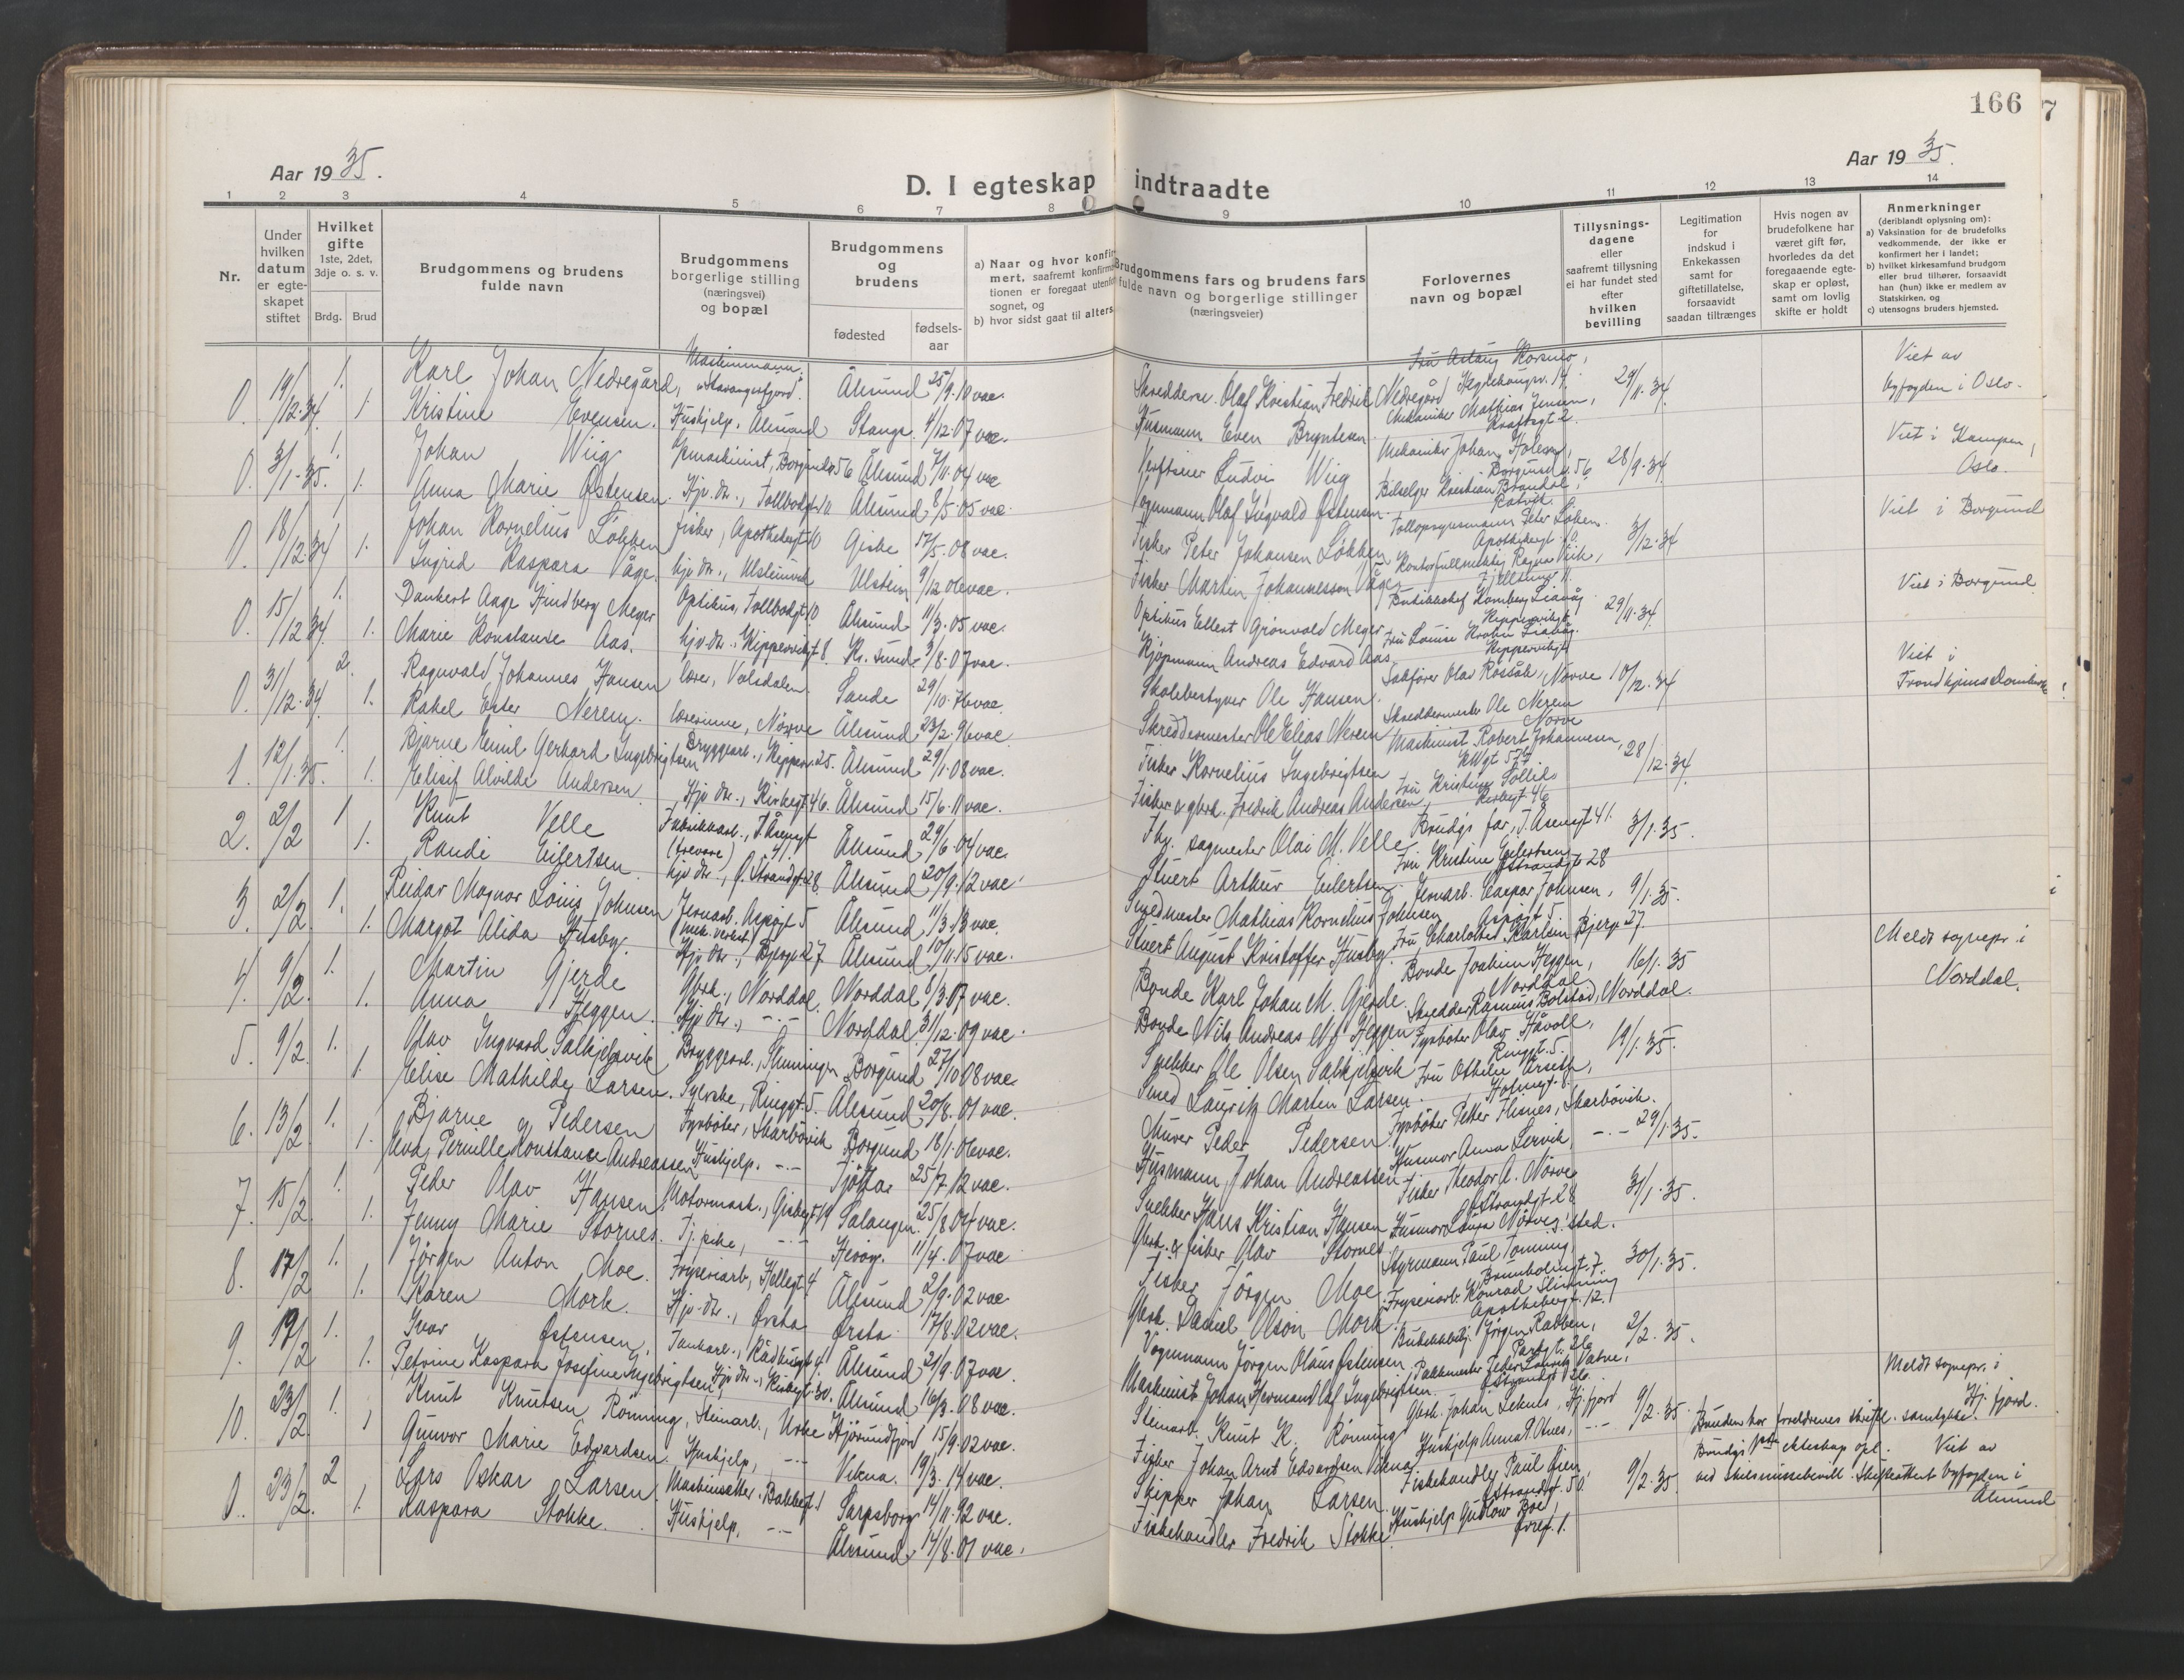 166
7
Aar 19 35.
Aar 19 35.
D. I egteskap indtraadte
1 2 3 4 5 6 7 8 9 10 11 12 13 14
Nr.
Under hvilken datum er egteskapet stiftet
Hvilket gifte
1ste, 2det, 3dje o. s. v.
Brdg. Brud
Brudgommens og brudens fulde navn
Brudgommens borgerlige stilling (næringsvei) og bopæl
Brudgommens og brudens
fødested
fødsels-aar
a) Naar og hvor konfir
mert, saafremt konfirma
tionen er foregaat utenfor
sognet, og
b) hvor sidst gaat til alters
Brudgommens fars og brudens fars
fulde navn og borgerlige stillinger
(næringsveier)
Forlovernes navn og bopæl
Tillysnings-dagene eller saafremt tillysning ei har fundet sted efter hvilken bevilling
Legitimation for indskud i Enkekassen samt for giftetillatelse, forsaavidt saadan tiltrænges
Hvis nogen av brudefolkene har været gift før, hvorledes da det foregaaende egte-skap er opløst, samt om lovlig skifte er holdt
Anmerkninger
(deriblandt oplysning om):
a) Vaksination for de brudefolks vedkommende, der ikke er konfirmert her i landet;
b) hvilket kirkesamfund brudgom eller brud tilhører, forsaavidt han (hun) ikke er medlem av Statskirken, og
c) utensogns bruders hjemsted.
0. 19/12.34. 1. Karl Johan Nedregård, Maskinmann, "Stavangerfjord". Ålesund 25/9.10 vac. Skreddersv. Olaf Kristian Fredrik Nedregård Fru Aslaug Korsmo, 29/11.34. Viet av byfogden i Oslo.
1. Kristine Evensen. Hushjelp. Ålesund Stange. 4/12.07 vac. Husmann Even Bryntesen. Mekaniker Mathias Jensen,
0. 3/1-35. 1. Johan Wiig Ålesund 7/11.04 vac Verftseier Ludvi Wiig Mekaniker Johan 28/9.34 Viet i Kampen, Oslo.
1. Anna Marie Østensen. Hjv. dtr., Tollbodgt 11 Ålesund 8/5.05 vac. Vognmann Olaf Ingvald Østensen. Bilselger Kristian Brandal,
0. 18/12.34 1. Johan Kornelius Løkken Fisker, Apothekergt 10 Giske 17/5.08 vac. Fisker Peter Johansen Løkken Apothekergt. 10. 3/12.34 Viet i Borgund
1. Ingrid Kaspara Våge. hjv. dtr., Ulsteinvik Ulstein 9/12 06 vac. Fisker Martin Johannesson Våge Kontorfullmektig Ragnar Vik,
0. 15/12 34. 1. Dankert Aage Hindberg Meyer Optikus, Tollbodgt 10 Ålesund 11/3.05 vac. Optikus Ellert Grönvold Meyer 29/11.34. Viet i Borgund.
1. Marie Konstanse Aas. hjv. dtr., Kippervikgt 8. Kr. sund 3/8.07 vac. Kjøpmann Andreas Edvard Aas.
0. 31/12.34. 2. Ragnvald Johannes Hansen lærer, Volsdalen. Sande 29/10.76 vac. Skolebestyrer Ole Hansen. Sakfører Olav Nørve 10/12.34 Viet i Trondhjems Domkirke
1. Rakel Ester Nerem. lærerinne, Nørve Ålesund 23/2.96 vac. Skreddermester Ole Elias Nerem Skreddermester Ole Nerem Nørve
1. 12/1.35. 1. Bjarne Emil Gerhard Ingebrigtsen Bryggearb., 25. Ålesund 29/1.08 vac. Fisker Kornelius Ingebrigtsen Maskinist Robert Johannesen, 28/12.34.
1. Elisif Alvilde Andersen Hjv dtr., Kirkegt 46. Ålesund 15/6.11 vac. Fisker & gbrk. Fredrik Andreas Andersen Fru Kristine Kirkegt 46
2. 2/2 1 Knut Velle Fabrikkarb., J. Åsengt 41. Ålesund 29/6.04 vac. Fhv. sagmester Olai M. Velle Brudg's far, J. Åsengt. 41. 3/1.35.
1. Randi Eilertsen. hjv dtr., Ø. Strandgt 28. Ålesund 20/9.12 vac. Stuert Arthur Eilertsen. Fru Kristine Eilertsen Østrandgt 28
3. 2/2. 1. Reidar Magnar Louis Johnsen Jernarb. Aspøgt 5 (mek. verkst.) Ålesund 11/3.13 vac. Smedmester Mathias Kornelius Johnsen Jernarb. Caspar Johnsen, Aspøgt 5. 9/1.35.
1. Margot Alida Husby. Hjv dtr., 27 Ålesund 10/11.15 vac. Stuert August Kristoffer Husby. Fru Charlotte Karlsen Bjerg. 27.
4. 9/2. 1. Martin Gjerde Gbrk., Norddal. Norddal 8/3.07 vac. Bonde Karl Johan M. Gjerde. Bonde Joakim Heggen, Norddal 16/1.35 Meldt sognepr. i Norddal.
1. Anna Heggen. Hjv dtr., -"- Norddal. 31/12.09 vac. Bonde Nils Andreas N. Heggen Skredder Rasmus Bolstad, Norddal.
5. 9/2. 1. Olav Ingvard Salkjelsvik Bryggearb., Slinningen Borgund 27/10 08 vac. Snekker Ole Olsen Salkjelsvik Fyrbøter Olav Håvoll, Ringgt. 5. 19/1.35.
1. Elise Mathilde Larsen. Syerske, Ringgt. 5. Ålesund 20/8.01 vac. Smed Lauritz Martin Larsen. Fru Othilie Årseth,
6. 13/2. 1. Bjarne Pedersen Fyrbøter, Skarbövik Borgund 18/1.06 vac. Murer Peder Pedersen Fyrbøter Petter Flisnes, Skarbövik.
1. Pernille Konstanse Andreassen Hushjelp. -"- Tjötta 25/7.12 vac. Husmann Johan Andreassen Husmor Anna Lervik, -"- 29/1.35.
7. 15/2. 1. Peder Olav Hansen Motormask., Salangen. 25/8 04 vac. Snekker Hans Kristian Hansen Fisker Theodor A. Nörve 31/1.35.
1. Jenny Marie Stornes. Tj. pike, -"- Herøy. 11/4.07 vac Gbrk. & fisker Olav Stornes. Husmor Laura Nörve, s. sted.
8. 17/2 1. Jörgen Anton Moe. Fryseriarb, 4 Ålesund 2/9.02 vac. Fisker Jörgen Moe. Styrmann Paul Tonning, 30/1.35.
1. Karen Mork. Hjv. dtr., Ørsta Ørsta. 17/8.02 vac. Gbrk. Daniel Olson Mork Fryseriarb. Konrad Slinning Apothekergt. 12.
9. 19/2 1. Ivar Østensen. Rådhusgt 4. Ålesund 21/9.07 vac. Vognmann Jörgen Olaus Østensen. Jörgen Rabben, Parkgt. 26. 2/2.35.
1. Petrine Kaspara Josefine Ingebrigtsen, Hjv dtr., Kirkegt. 30. Ålesund 16/3.08 vac. Maskinist Johan Herman Olaf Ingebrigtsen. Pakkmester Peder Lauritz Vatne,
10. 23/2. 1. Knut Knutsen Rönning, Steinarb., Urke Hjörundfjord 15/9.02 vac. Steinarb. Knut K. Rönning Gbrk. Johan Hj. fjord 9/2.35. Meldt sognepr. i Hj. fjord.
1 Gunvor Marie Edvardsen. Hushjelp, -"- Vikna. 19/3.14 vac. Fisker Johan Arnt Edvardsen Vikna Hushjelp Anna -"- Bruden har foreldrenes skriftl. samtykke.
0. 23/2. 2 Lars Oskar Larsen. Maskinsetter. Sarpsborg 14/11.92 vac. Skipper Johan Larsen. Fiskehandler Paul 9/2.35. Brudgs ekteskap opl. ved skilsmissebevill. Skifteattest Viet av byfogden i Ålesund
1. Kaspara Stokke. Hushjelp, -"- Ålesund. 14/8.01 vac. Fiskehandler Fredrik Stokke. Hushjelp Gudlow Boe,